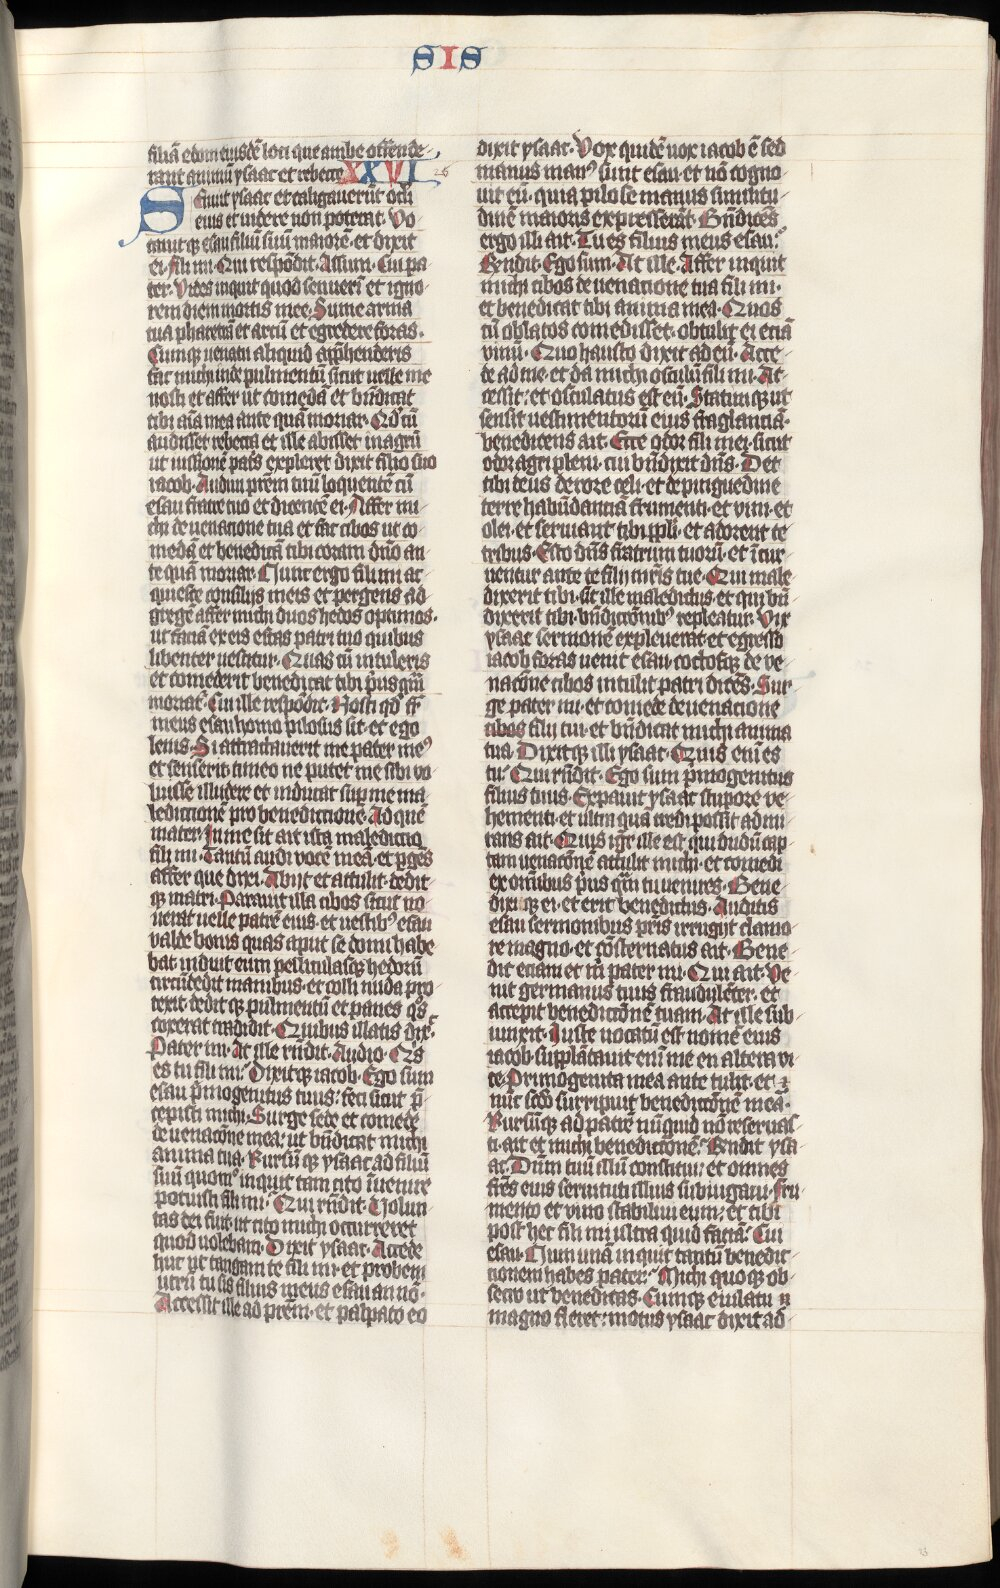 SIS
filiā elom eiusdē loci que ambe offende-
rant animū ysaac et rebecce XXVI 26
Senuit ysaac et caligaverūt oc̄li
eius et videre non poterat. Vo
cavitqꝫ esau filiū suū maiorē. et dixit
ei. fili mi. Qui respōdit. Assum. Cui pa-
ter. Vides inquit quod senuerī et igno-
rem diem mortis mee. Sume arma
tua pharetrā et arcū et egredere foras.
Cumqꝫ venatu aliquid app̄henderis
fac michi inde pulmentū sicut velle me
nosti et affer ut comedā et bn̄dicat
tibi aīa mea ante quā moriar. Qd̄ cū
audisset rebecca et ille abisset in agrū
ut iussionē pat̄s expleret dixit filio suo
iacob. Audivi pr̄em tuū loquentē cū
esau fratre tuo et dicentē ei. Affer mi-
chi de venatione tua et fac cibos ut co
medā et benedicā tibi coram dn̄o an-
te quā moriar. Nunc ergo fili mi ac-
quiesce consilijs meis et pergens ad
gregē affer michi duos hedos optimos.
ut faciā ex eis escas patri tuo quibus
libenter vescitur. Quas cū intuleris
et comederit benedicat tibi p̄us qm̄
moriat̄. Cui ille respōdit. Nosti qd̄ fr̄
meus esau homo pilosus sit. et ego
lenis. Si attractaverit me pater meꝰ
et senserit timeo ne putet me sibi vo-
luisse illudere et inducat sup̄ me ma-
ledictionē pro benedictione. Ad quē
mater. In me sit ait ista maledictio
fili mi. Tantū audi vocē meā. et p̄gēs
affer que dixi. Abijt et attulit. dedit
qꝫ matri. Paravit illa cibos sicut no-
verat velle patrē eius. et vestibꝰ esau
valde bonis quas aput se domi habe-
bat induit eum pelliculasqꝫ hedorū
circūdedit manibus. et colli nuda pro-
texit. deditqꝫ pulmentū et panes q̄s
coxerat tradidit. Quibus illatis dix̄.
Pater mi. At ille rn̄dit. Audio. Q̄s
es tu fili mi. Dixitqꝫ iacob. Ego sum
esau p̄mogenitus tuus. feci sicut p̄-
cepisti michi. Surge sede et comede
de venac̄one mea. ut bn̄dicat michi
anima tua. Rursūqꝫ ysaac ad filiū
suū quomō inquit tam cito īvenire
potuisti fili mi. Qui rn̄dit. Volun-
tas dei fuit. ut cito michi occurreret
quod volebam. Dixit ysaac. Accede
huc ut tangam te fili mi. et probem
utrū tu sis filius meus esau an nō.
Accessit ille ad pr̄em. et palpato eo
dixit ysaac. Vox quidē vox iacob ē sed
manus manꝰ sunt esau. et nō cogno-
vit eū. quia pilose manus similitu-
dinē maioris expresserāt. Bn̄dicēs
ergo illi ait. Tu es filius meus esau.
Rn̄dit. Ego sum. At ille. Affer inquit
michi cibos de venatione tua fili mi.
et benedicat tibi anima mea. Quos
cū oblatos comedisset. obtulit ei etiā
vinū. Quo hausto dixit ad eū. Acce-
de ad me. et da michi osculū fili mi. Ac-
cessit. et osculatus est eū. Statimqꝫ ut
sensit vestimentorū eius fraglantiā.
benedicens ait. Ecce odor fili mei. sicut
odor agri pleni. cui bn̄dixit dn̄s. Det
tibi deus de rore celi. et de pinguedine
terre habūdantiā frumenti. et vini. et
olei. et serviant tibi pp̄li. et adorent te
tribus. Esto dn̄s fratrum tuorū. et ī cur-
ventur ante te filij mr̄is tue. Qui male-
dixerit tibi. sit ille maledictus. et qui bn̄
dixerit tibi. bn̄dictōnibꝰ repleatur. Vix
ysaac sermonē expleverat. et egresso
iacob foras venit esau. coctosqꝫ de ve-
nacōne cibos intulit patri dicēs. Sur-
ge pater mi. et comede de venatione
cibos filij tui. et bn̄dicat michi anima
tua. Dixitqꝫ illi ysaac. Quis eni es
tu. Qui rn̄dit. Ego sum p̄mogenitus
filius tuus. Expavit ysaac stupore ve-
hementi. et ultra quā credi possit admi-
rans ait. Quis igr̄ ille est. qui dudū cap-
tam venacōnē attulit michi. et comedi
ex om̄ibus p̄us qm̄ tu venires. Bene-
dixiqꝫ ei. et erit benedictus. Auditis
esau sermonibus pr̄is irrugijt clamo-
re magno. et cōsternatus ait. Bene-
dic etiam et m̄ pater mi. Qui ait. Ve-
nit germanus tuus fraudulēter. et
accepit benedictōnē tuam. At ille sub-
iunxit. Iuste vocatū est nomē eius
iacob. supplātavit enī me en altera vi-
ce. Primogenita mea ante tulit. et
nūc scd̄o surripuit benedictōnē meā.
Rursūqꝫ ad patrē nūquid nō reservas-
ti. ait et michi benedictionē. Rn̄dit ysa-
ac. Dn̄m tuū illū constitui. et omnes
fr̄es eius servituti illius subiugavi. fru-
mento et vino stabilivi eum. et tibi
post hec fili mi ultra quid faciā. Cui
esau. Num unā inquit tantū benedic-
tionem habes pater. Michi quoqꝫ ob-
secro ut benedicas. Cumqꝫ eiulatu
magno fleret. motus ysaac dixit ad